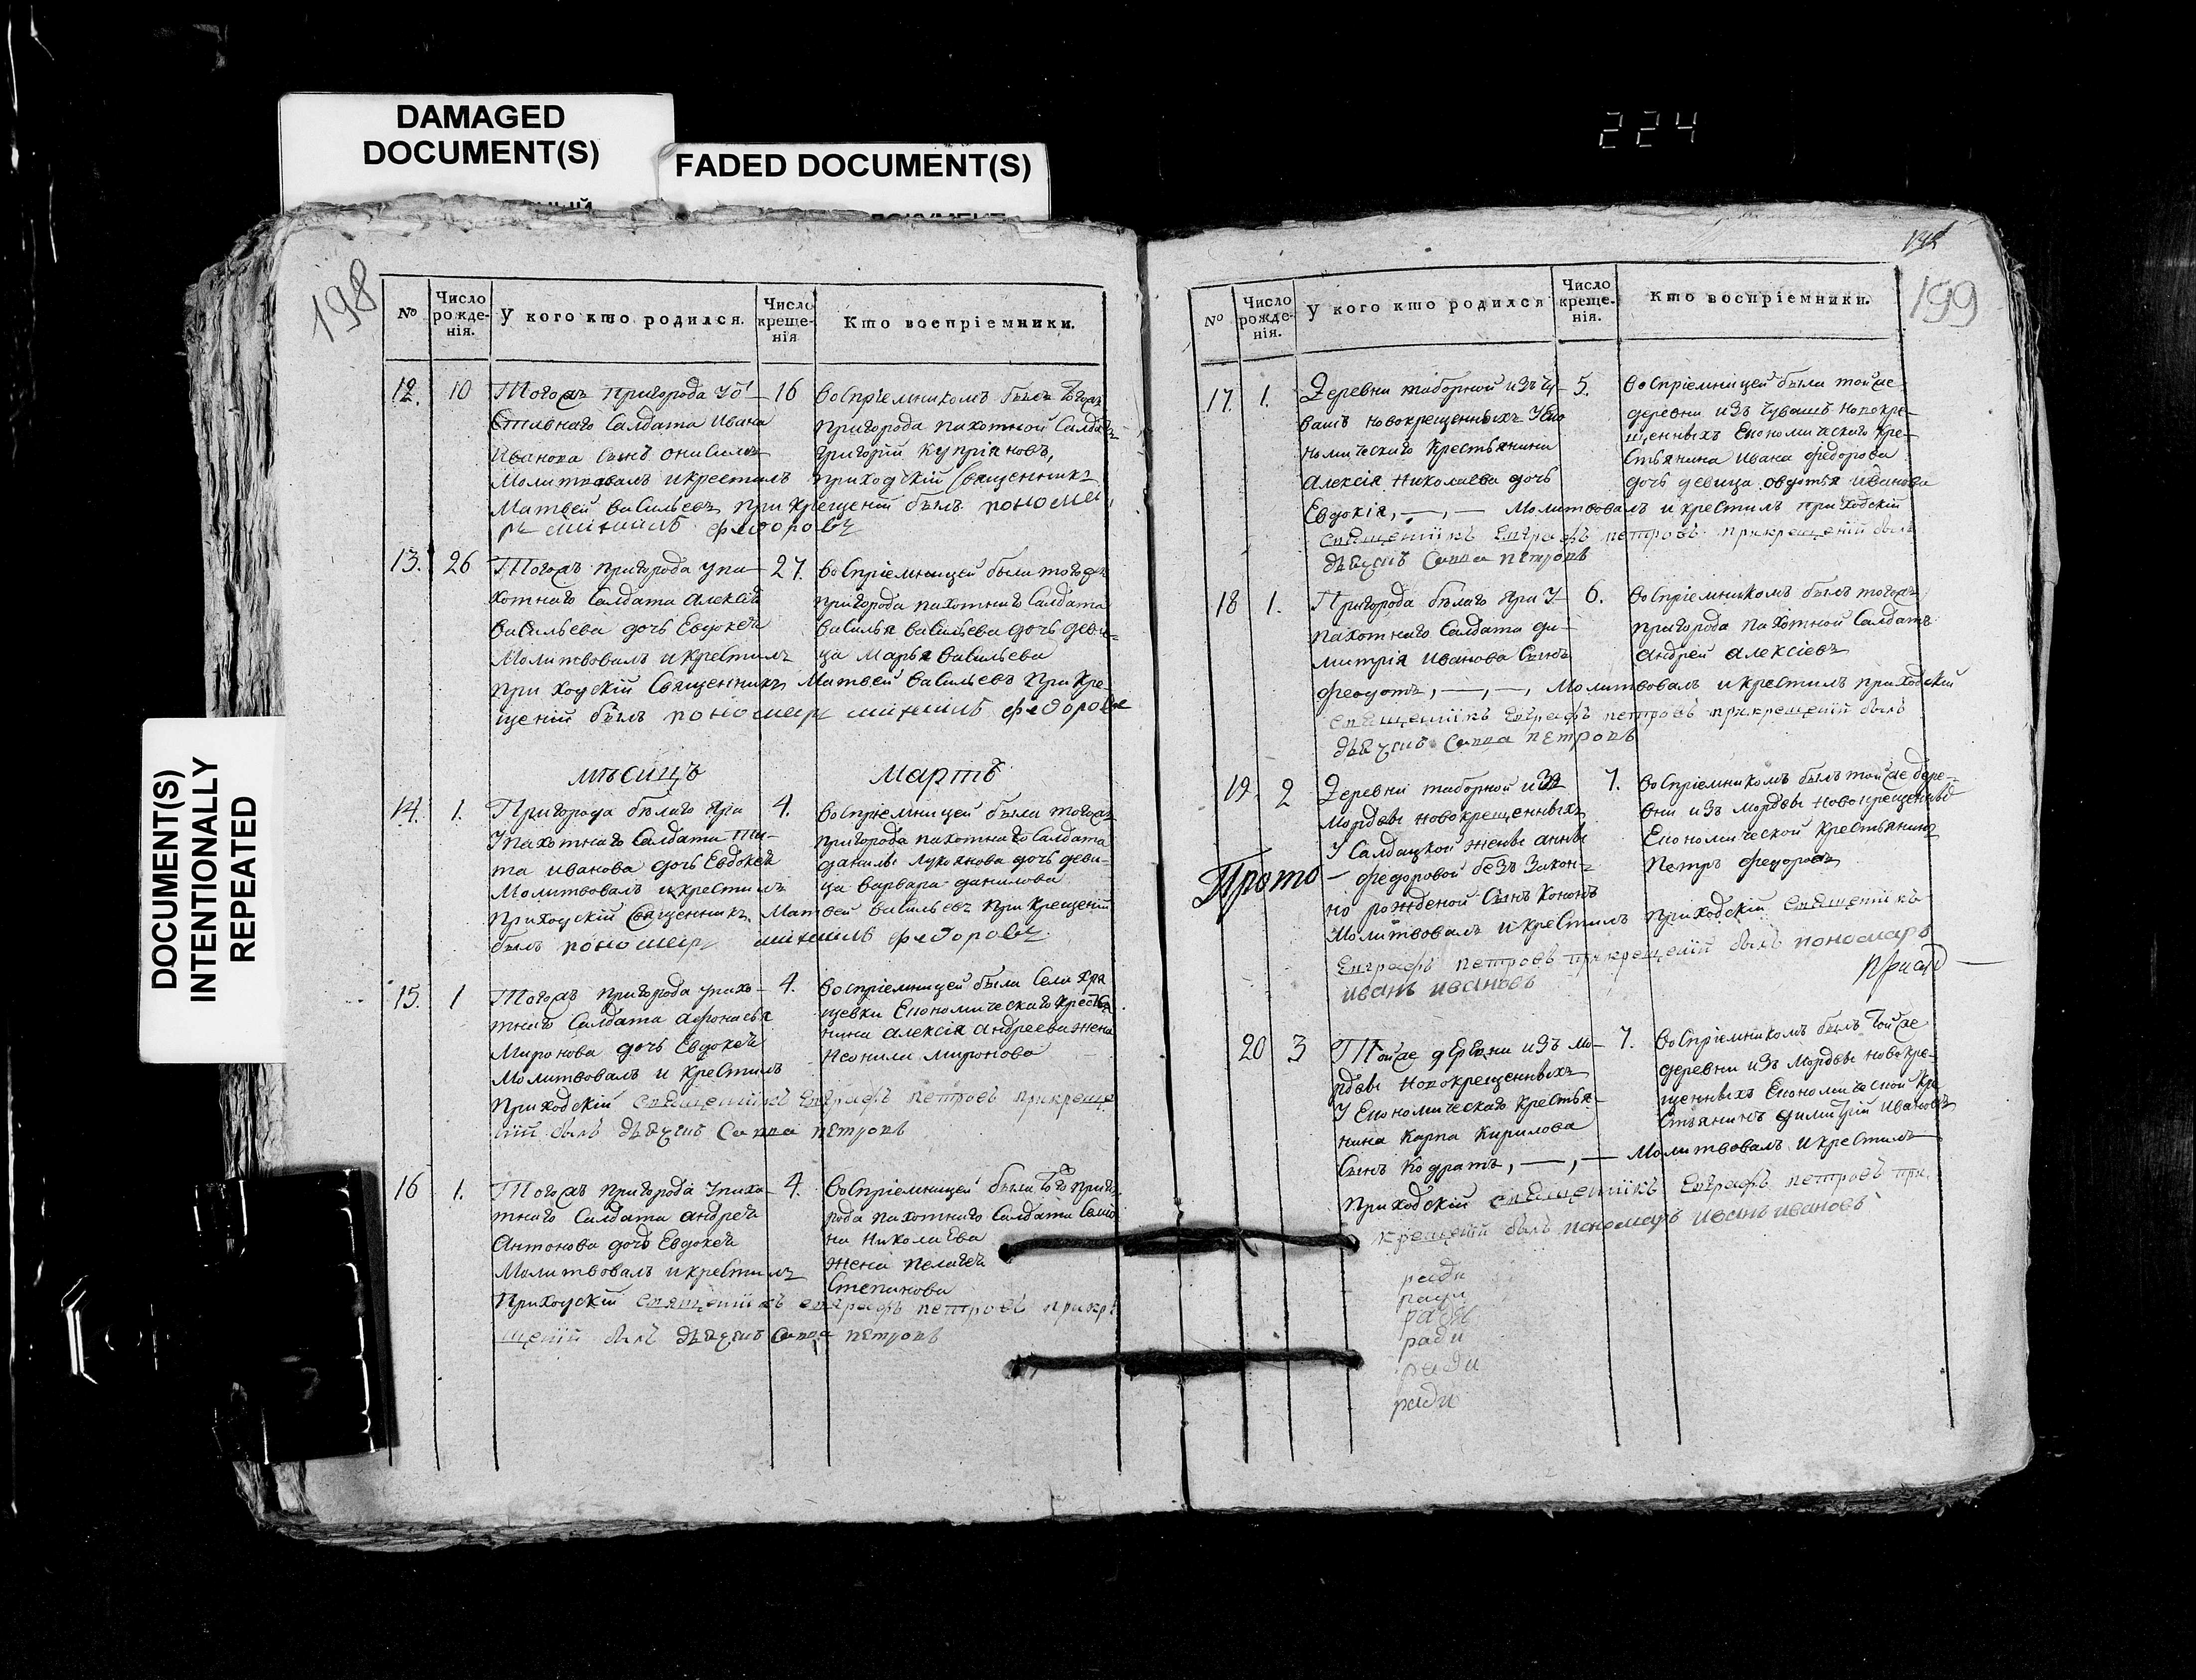 DAMAGED
DOCUMENT(S)
FADED DOCUMENT(S)
224
DOCUMENT(S)
INTENTIONALLY
REPEATED
198
№
Число рожде-нія.
У кого кто родился.
Число креще-нія
Кто воспріемники.
12. 10
Тогожъ пригорода уо
ставнаго Салдата Ивана
Иванова сынъ Онисимъ
Молитвовалъ икрестилъ приходскій Священникъ
Матвей Васильевъ при крещеніи былъ пономо
рь михаилъ федоровъ
16
Воспріемникомъ былъ тогожъ
пригорода пахотной Салдатъ
Григорій Купріяновъ,
13. 26
Тогожъ пригорода упа-
хотнаго Салдата Алексея
Васильева дочь Евдокея
Молитвовалъ икрестилъ
приходскій Священникъ Матвей Васильевъ при кре
щеніи былъ пономарь михаилъ федоровъ
27.
Воспріемницей была тогожъ
пригорода пахотнаго Салдата
Василья Васильева дочь деви-
ца Марья Васильева
мѣсяцъ мартъ
14. 1.
Пригорода бѣлаго Яра
Упахотнаго Салдата Ти-
та иванова дочь Евдокея
Молитвовалъ икрестилъ
приходскій Священникъ Матвей Васильевъ при крещеніи
былъ пономарь михаилъ федоровъ
4.
Воспріемницей была тогожъ
пригорода пахотнаго Салдата
данилы Лукьянова дочь деви-
ца варвара данилова
15. 1
Тогожъ пригорода упахо-
тнаго Салдата афонасья
Миронова дочь Евдокея
Молитвовалъ и крестилъ
приходскій священникъ Евграфъ петровъ прикреще
ніи былъ дьячокъ Савва петровъ
4.
Воспріемницей была Села Хря
щевки Економическаго кресть
янина алексія андреева жена
Неонила миронова
16 1.
Тогожъ пригорода упахо-
тнаго Салдата андрея
Антонова дочь Евдокея
Молитвовалъ икрестилъ
Приходскій священникъ евграфъ петровъ прикре
щеніи былъ дьячокъ Савва петровъ
4.
Воспріемницей была того приго
рода пахотнаго Салдата Семіо
на Николаева
жена пелагея
Степанова
199
№
Число рожде-нія.
У кого кто родился
Число креще-нія.
Кто воспріемники.
17. 1.
Деревни таборной изъ чу-
вашъ новокрещенныхъ Уеко
номическаго Крестьянина
Алексія Николаева дочь
Евдокія, —,— Молитвовалъ и крестилъ приходскій
священникъ Евграфъ петровъ прикрещеніи былъ
дьячокъ Савва петровъ
5.
Воспріемницей была тойже
деревни изъ Чувашъ новокре-
щенныхъ Економическаго кре-
стьянина ивана федорова
дочь девица овдотья иванова
18 1.
Пригорода бѣлаго Яра У-
пахотнаго Салдата ди-
митрія иванова сынъ
феодотъ, —,—, Молитвовалъ икрестилъ приходскій
священникъ Евграфъ петровъ прикрещеніи былъ
дьячокъ Савва петровъ
6.
Воспріемникомъ былъ тогожъ
пригорода пахотной Салдатъ
андрей алексіевъ
19. 2
Деревни таборной изъ
мордвы новокрещенныхъ
У Салдацкой жены анны
федоровой безъ закон-
но рожденой сынъ Кононъ
Молитвовалъ икрестилъ приходскій священникъ
Евграфъ петровъ прикрещеніи былъ пономарь
иванъ ивановъ
7.
Воспріемникомъ былъ тойже дере-
вни изъ мордвы новокрещенныхъ
Економической крестьянинъ
петръ федоровъ
Прото-
20 3
Тойже деревни изъ мо-
рдвы новокрещенныхъ
У Економическаго крестья-
нина Карпа Кирилова
сынъ Кодратъ, —,— Молитвовалъ икрестилъ
приходскій священникъ Евграфъ петровъ при
крещеніи былъ пономарь иванъ ивановъ
7.
Воспріемникомъ былъ тойже
деревни изъ мордвы новокре-
щенныхъ Економической кре
стьянинъ димитрій ивановъ
ради
ради
ради
ради
ради
ради